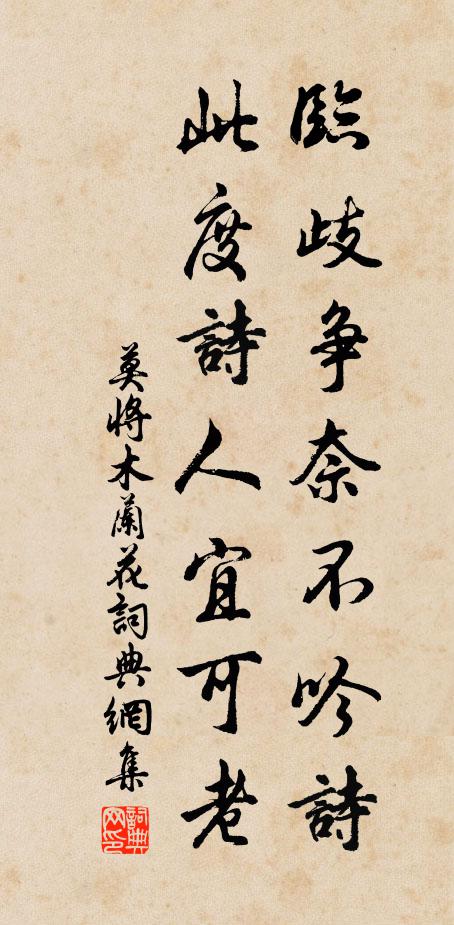 臨歧争奈不吟詩
此度詩人宜可老
莫將木蘭花詞典網集
詞典网印